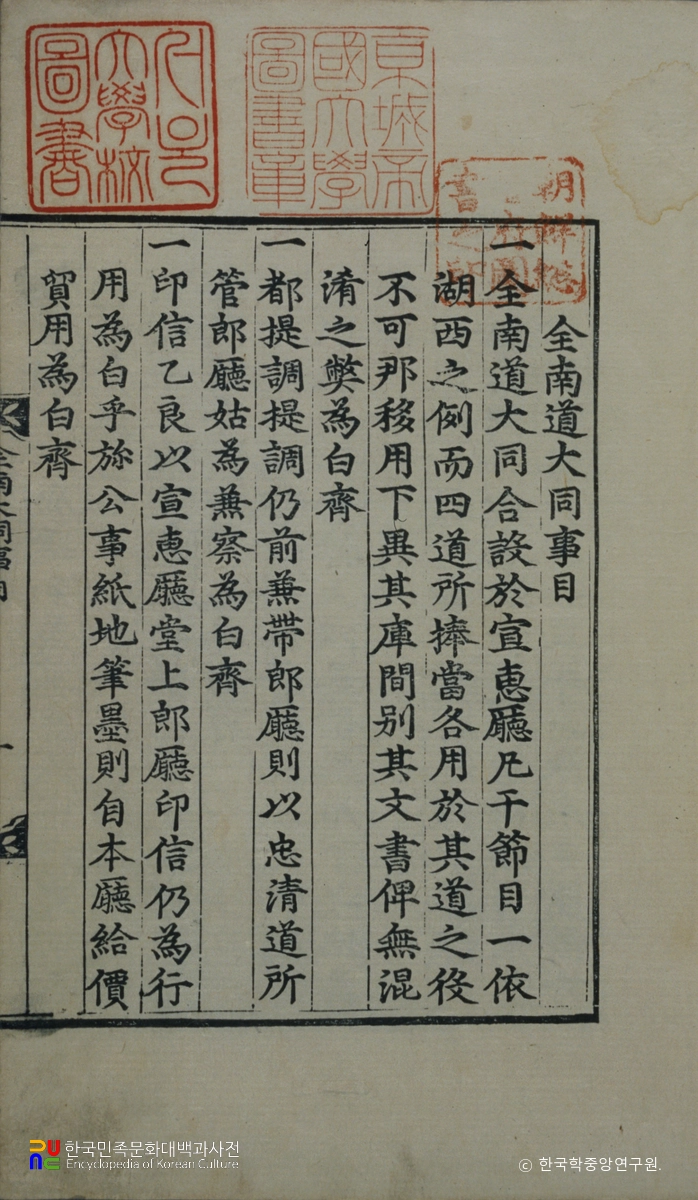 全南道大同事目
一全南道大同合設於宣惠廳凡干節目一依
湖西之例而四道所捧當各用於其道之役
不可那移用下異其庫間别其文書俾無混
淆之弊為白齊
一都提調提調仍前兼帶郎廳則以忠清道所
管郎廳姑為兼察為白齊
一印信乙良以宣惠廳堂上郎廳印信仍為行
用為白乎旀公事紙地筆墨則自本廳給價
貿用為白齊
全南大同事目
一
京城帝
國大學
圖書章
大學校
圖書
朝鮮總
督府圖
書之印
한국민족문화대백과사전
Encyclopedia of Korean Culture
© 한국학중앙연구원.